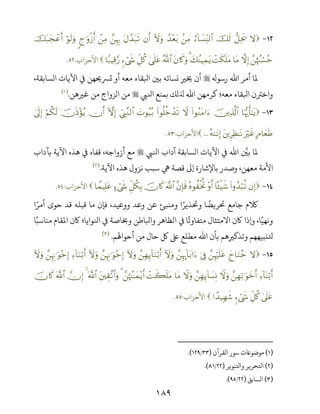 ١٢- ﴿لَّا يَحِلُّ لَكَ ٱلنِّسَآءُ مِنۢ بَعۡدُ وَلَآ أَن تَبَدَّلَ بِهِنَّ مِنۡ أَزۡوَٰجٖ وَلَوۡ أَعۡجَبَكَ
حُسۡنُهُنَّ إِلَّا مَا مَلَكَتۡ يَمِينُكَۗ وَكَانَ ٱللَّهُ عَلَىٰ كُلِّ شَيۡءٖ رَّقِيبٗا﴾ الأحزاب:٥٢.
لما أمر الله رسوله ﷺ أن يخير نسائه بين البقاء معه أو تسريحهن في الآيات السابقة،
واخترن البقاء معه؛ كرمهن الله لذلك بمنع النبي ﷺ من الزواج من غيرهن.(١)
١٣- ﴿يَٰٓأَيُّهَا ٱلَّذِينَ ءَامَنُواْ لَا تَدۡخُلُواْ بُيُوتَ ٱلنَّبِيِّ إِلَّآ أَن يُؤۡذَنَ لَكُمۡ إِلَىٰ
طَعَامٍ غَيۡرَ نَٰظِرِينَ إِنَىٰهُ ... ﴾ الأحزاب:٥٣.
لما بيَّن الله في الآيات السابقة آداب النبي ﷺ مع أزواجه، قفاه في هذه الآية بآداب
الأمة معهن، وصدر بالإشارة إلى قصة هي سبب نزول هذه الآية.(٢)
١٤- ﴿إِن تُبۡدُواْ شَيۡـًٔا أَوۡ تُخۡفُوهُ فَإِنَّ ٱللَّهَ كَانَ بِكُلِّ شَيۡءٍ عَلِيمٗا﴾ الأحزاب:٥٤.
كلام جامع تحريضًا وتحذيرًا ومنبئ عن وعد ووعيد، فإن ما قبله قد حوى أمرًا
ونهيًا، وإذا كان الامتثال متفاوتًا في الظاهر والباطن وبخاصة في النوايا؛ كان المقام مناسبًا
لتنبيههم وتذكيرهم بأن الله مطلع على كل حال من أحوالهم.(٣)
١٥- ﴿لَّا جُنَاحَ عَلَيۡهِنَّ فِيٓ ءَابَآئِهِنَّ وَلَآ أَبۡنَآئِهِنَّ وَلَآ إِخۡوَٰنِهِنَّ وَلَآ أَبۡنَآءِ إِخۡوَٰنِهِنَّ وَلَآ
أَبۡنَآءِ أَخَوَٰتِهِنَّ وَلَا نِسَآئِهِنَّ وَلَا مَا مَلَكَتۡ أَيۡمَٰنُهُنَّۗ وَٱتَّقِينَ ٱللَّهَۚ إِنَّ ٱللَّهَ كَانَ
عَلَىٰ كُلِّ شَيۡءٖ شَهِيدًا﴾ الأحزاب:٥٥.
(١) موضوعات سور القرآن (١٢٩/٣٣).
(٢) التحرير والتنوير (٨١/٢٢).
(٣) السابق (٩٥/٢٢).
١٨٩